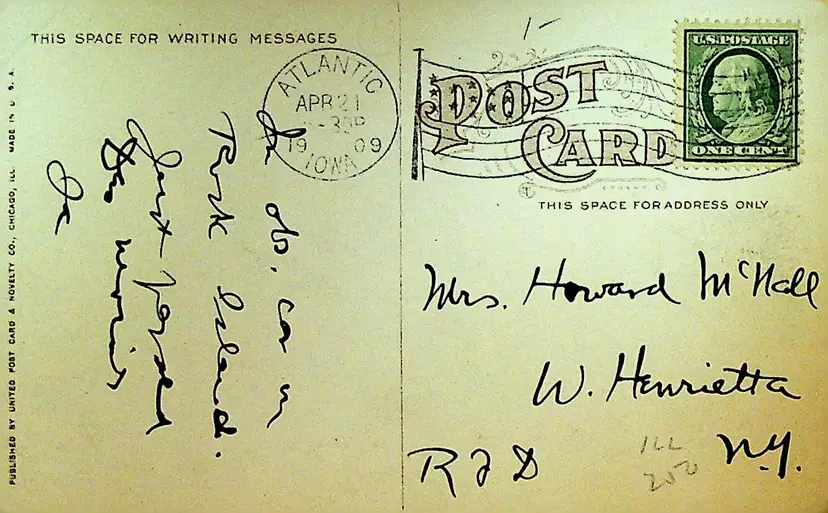 THIS SPACE FOR WRITING MESSAGES
ATLANTIC
APR 21
1909
IOWA
In obs. car on
Rock Island.
Just passed
Des Moines
Ia
PUBLISHED BY UNITED POST CARD & NOVELTY CO., CHICAGO, ILL. MADE IN U. S. A.
1-
POST CARD
U.S. POSTAGE
ONE CENT
THIS SPACE FOR ADDRESS ONLY
Mrs. Howard McNall
W. Henrietta
RFD N.Y.
ILL
250